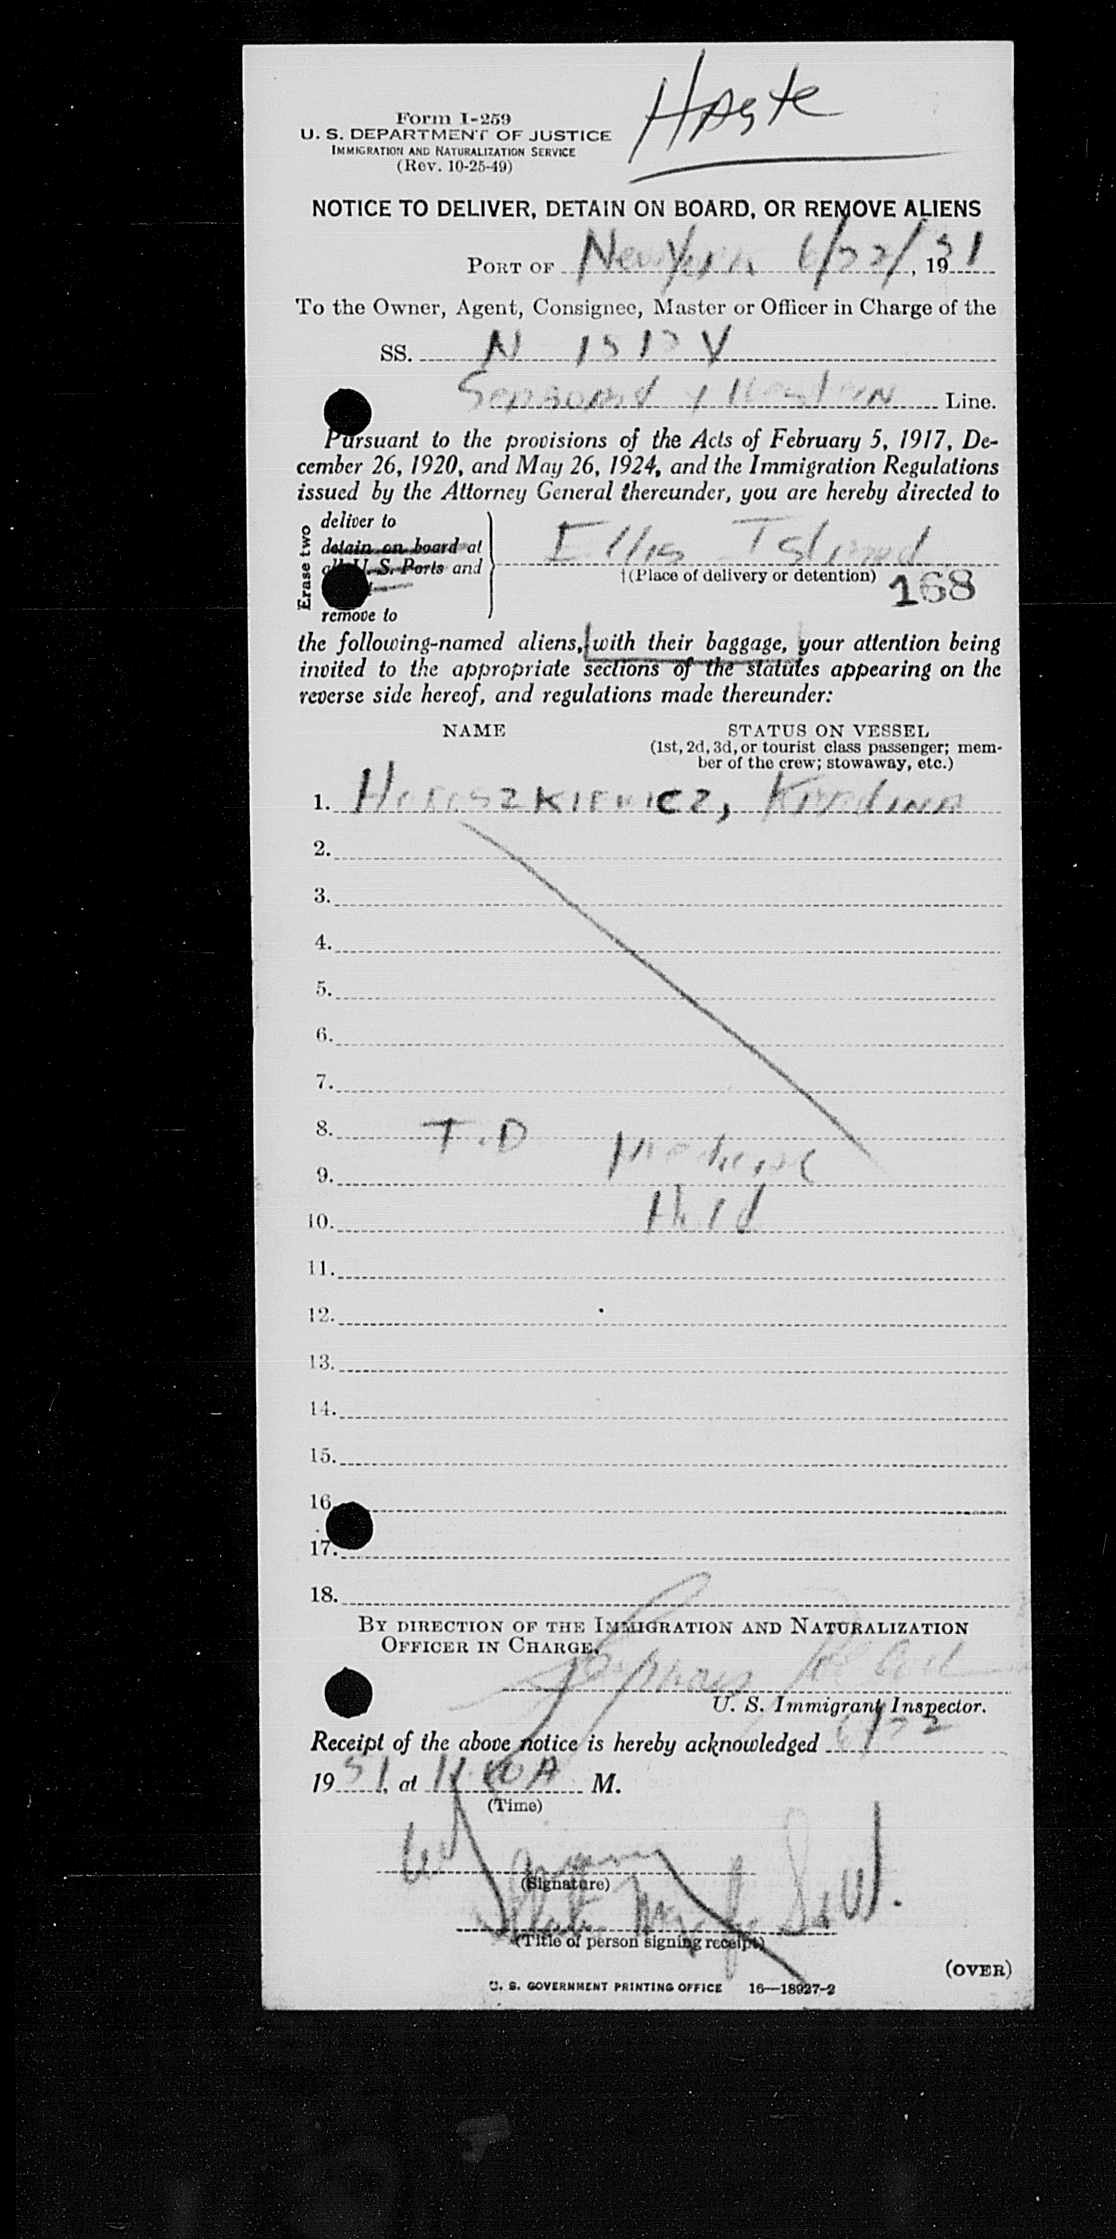 Form I-259
U. S. DEPARTMENT OF JUSTICE
IMMIGRATION AND NATURALIZATION SERVICE
(Rev. 10-25-49)
NOTICE TO DELIVER, DETAIN ON BOARD, OR REMOVE ALIENS
PORT OF New York 6/22/, 1951
To the Owner, Agent, Consignee, Master or Officer in Charge of the
SS. N
Seaboard & Western Line.
Pursuant to the provisions of the Acts of February 5, 1917, De-
cember 26, 1920, and May 26, 1924, and the Immigration Regulations
issued by the Attorney General thereunder, you are hereby directed to
Erase two
deliver to
detain on board at
all U. S. Ports and
remove to
Ellis Island
†(Place of delivery or detention)
168
the following-named aliens, with their baggage, your attention being
invited to the appropriate sections of the statutes appearing on the
reverse side hereof, and regulations made thereunder:
NAME
STATUS ON VESSEL
(1st, 2d, 3d, or tourist class passenger; mem-
ber of the crew; stowaway, etc.)
1.
2.
3.
4.
5.
6.
7.
8. T.D
9.
10. Held
11.
12.
13.
14.
15.
16.
17.
18.
BY DIRECTION OF THE IMMIGRATION AND NATURALIZATION
OFFICER IN CHARGE.
U. S. Immigrant Inspector.
Receipt of the above notice is hereby acknowledged 6/22
1951, at A M.
(Time)
(Signature)
(Title of person signing receipt)
(OVER)
U. S. GOVERNMENT PRINTING OFFICE 16—18927-2